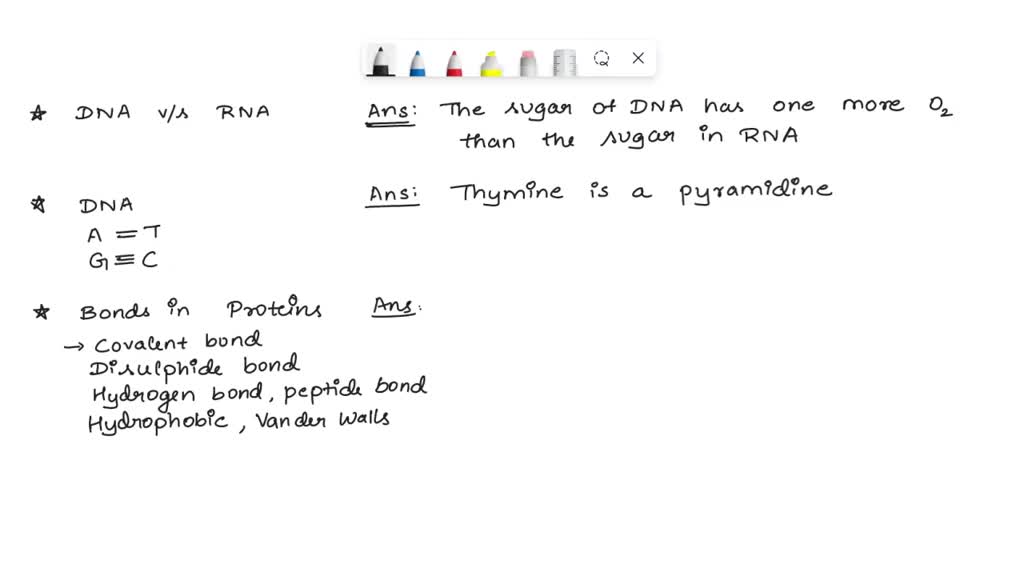 ☆ DNA v/s RNA Ans: The sugar of DNA has one more O2
than the sugar in RNA
☆ DNA Ans: Thymine is a pyramidine
A = T
G ≡ C
☆ Bonds in Proteins Ans:
→ Covalent bond
Disulphide bond
Hydrogen bond, peptide bond
Hydrophobic, Van der Walls